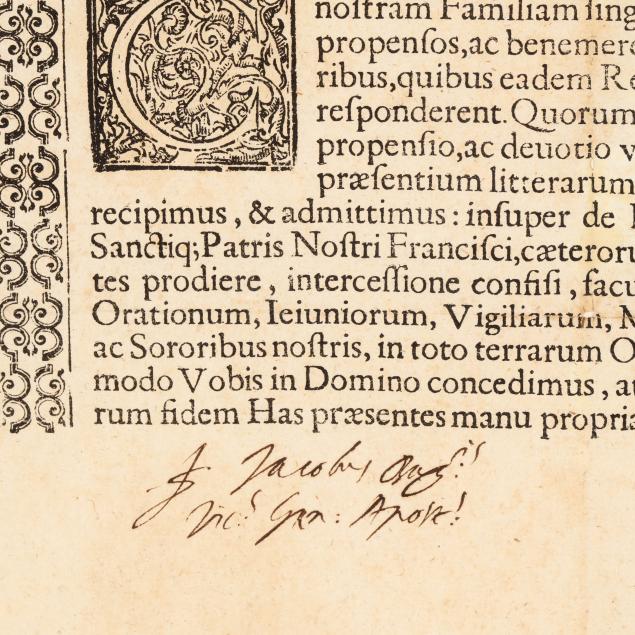 C
noſtram Familiam ſing
propenſos, ac benemere
ribus, quibus eadem Re
reſponderent. Quorum
propenſio, ac deuotio v
præſentium litterarum
recipimus, & admittimus: inſuper de
Sanctiq; Patris Noſtri Franciſci, cæteroru
tes prodiere, interceſſione confiſi, facu
Orationum, Ieiuniorum, Vigiliarum, M
ac Sororibus noſtris, in toto terrarum O
modo Vobis in Domino concedimus, au
rum fidem Has præsentes manu propria
F. Jacobus
Vic.s Gen: Apost.s